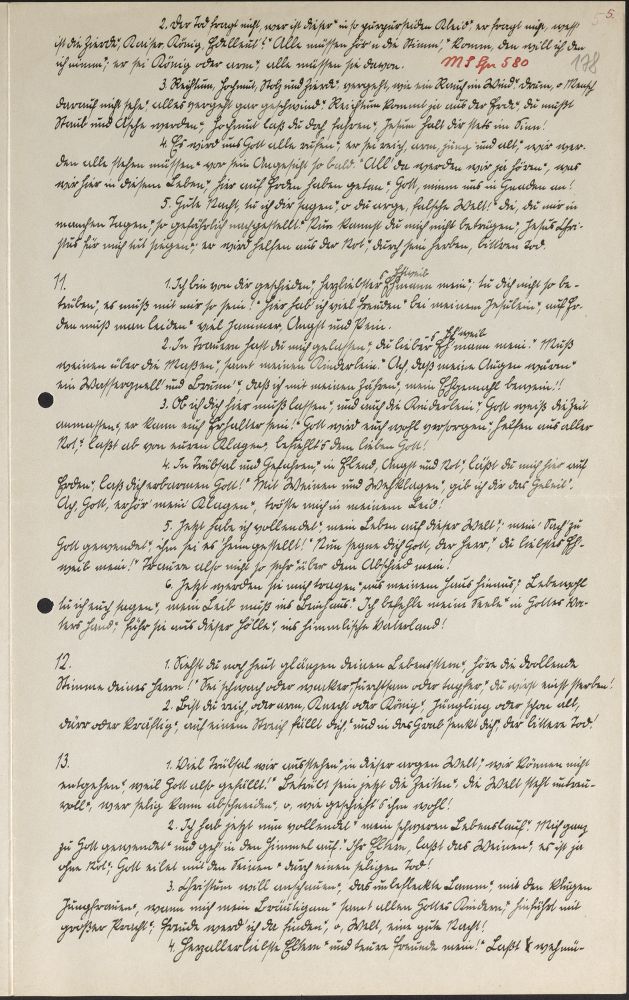 5.
2. Der Tod fragt nicht, wer ist dieser" in so purpurseiden Kleid", er fragt nicht, wess
ist die Zierde", Kaiser, König, Edelleut!" Alle müssen hör'n die Stimm'," komm, den will ich den
ich nimm"; er sei König oder arm", alle müssen sie davon. MS Lpr 580 178
3. Reichtum, Hochmut, Stolz und Zierde", vergeht, wie ein Rauch im Wind". Drum, o Mensch
darauf nicht sehe", alles vergeht gar geschwind". Reichtum kommt ja aus der Erde", du mußt
Staub und Asche werden", Hochmut laß du doch fahren", Jesum halt dir stets im Sinn!
4. Es wird uns Gott alle rufen", er sei reich, arm, jung und alt", wir wer-
den alle stehen müssen" vor sein Angesicht so bald." All' da werden wir ja hören", was
wir hier in diesem Leben", hier auf Erden haben getan." Gott, nimm uns in Gnaden an!
5. Gute Nacht, tu ich dir sagen", o du arge, falsche Welt!" die, du mir in
manchen Tagen", so gefährlich nachgestellt." Nun kannst du mich nicht betrügen", Jesus Chri-
stus für mich tut siegen", er wird helfen aus der Not", durch sein herben, bittren Tod.
11. 1. Ich bin von dir geschieden", herzliebster Ehmann mein"; tu dich nicht so be-
Ehweib
trüben", es muß mit mir so sein!" Hier hab ich viel Freuden" bei meinem Jesulein", auf Er-
den muß man leiden" viel Jammer, Angst und Pein.
2. In Trauern hast du mich gelassen", du lieber Eh'mann mein." Muß
s Eh'weib
weinen über die Maßen", samt meinen Kinderlein." Ach, daß meine Augen wären"
ein Wasserquell und Brunn'", daß ich mit meinen Zähren", mein Ehgemahl bewein'!
3. Ob ich dich hier muß lassen", und auch die Kinderlein", Gott weiß die Zeit
anmassen", er kann euch Erhalter sein!" Gott wird euch wohl versorgen", helfen aus aller
Not", laßt ab von euren Klagen", befiehlt's dem lieben Gott!
4. In Trübsal und Gefahren" in Elend, Angst und Not", läßt du mich hier auf
Erden", laß dich erbarmen Gott!" Mit Weinen und Wehklagen", gib ich dir das Geleit".
Ach, Gott, erhör' mein Klagen", tröste mich in meinem Leid!
5. Jetzt habe ich vollendet", mein Leben auf dieser Welt", mein' Sach' zu
Gott gewendet", ihm sei es heimgestellt!" Nun segne dich Gott, der Herr", du liebstes Eh-
weib mein!" Traure also nicht so sehr" über dem Abschied mein!
6. Jetzt werden sie mich tragen", aus meinem Haus hinaus", Lebewohl
tu ich euch sagen", mein Leib muß ins Beinhaus". Ich befehle meine Seele" in Gottes Va-
ters Hand", führ sie aus dieser Hölle", ins himmlische Vaterland!
12. 1. Siehst du noch heut glänzen deinen Lebensstern", höre die drollende
Stimme deines Herrn!" Sei schwach oder wacker, furchtsam oder tapfer", du wirst einst sterben!
2. Bist du reich, oder arm, Knecht oder König", Jüngling oder schon alt,
dürr oder kräftig", auf einem Streich fällt dich", und in das Grab senkt dich", der bittere Tod!
13. 1. Viel Trübsal wir ausstehen", in dieser argen Welt", wir können nicht
entgehen", weil Gott also gefällt!" Betrübt sein jetzt die Zeiten", die Welt steht untreu-
voll", wer selig kann abscheiden", o, wie geschieht's ihm wohl!
2. Ich hab jetzt nun vollendet" mein schweren Lebenslauf". Mich ganz
zu Gott gewendet" und geh' in den Himmel auf." Ihr Eltern, laßt das Weinen", es ist ja
ohne Not"; Gott eilet mit den Seinen" durch einen seligen Tod!
3. Christum will anschauen", das unbefleckte Lamm", mit den klugen
Jungfrauen", wann mich mein Bräutigam" samt allen Gottes Kindern", hinführt mit
großer Pracht"; Freude werd' ich da finden", o, Welt, eine gute Nacht!
4. Herzallerliebste Eltern" und teure Freunde mein!" Laßt wehmü-